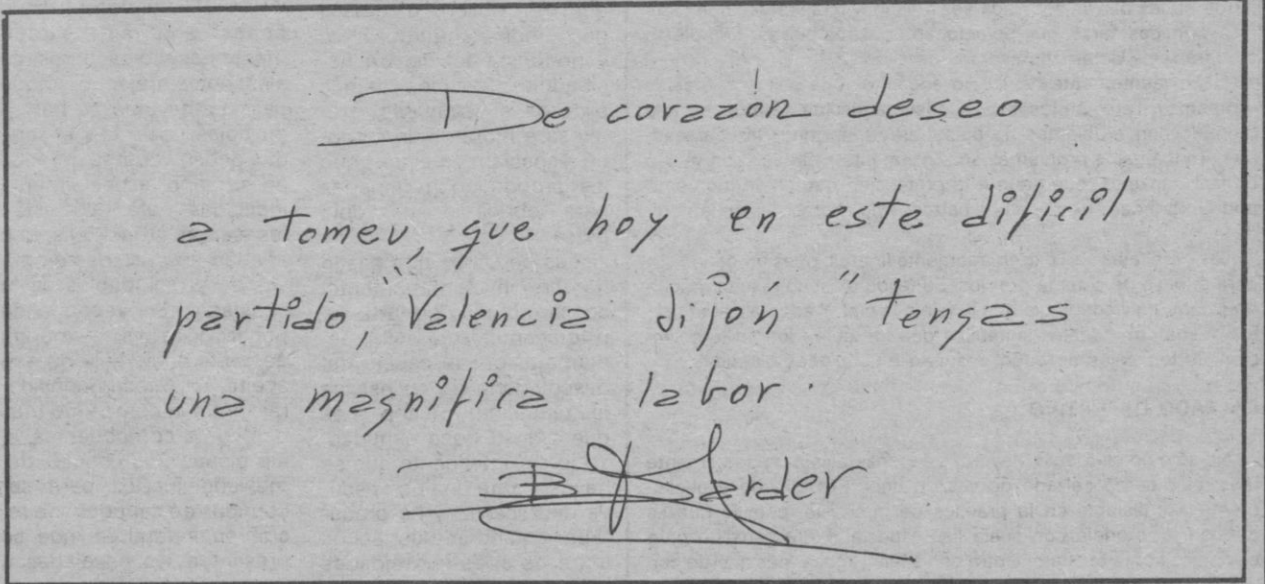 De corazón deseo
a Tomeu, que hoy en este dificil
partido, "Valencia Jijón" tengas
una magnifica labor.